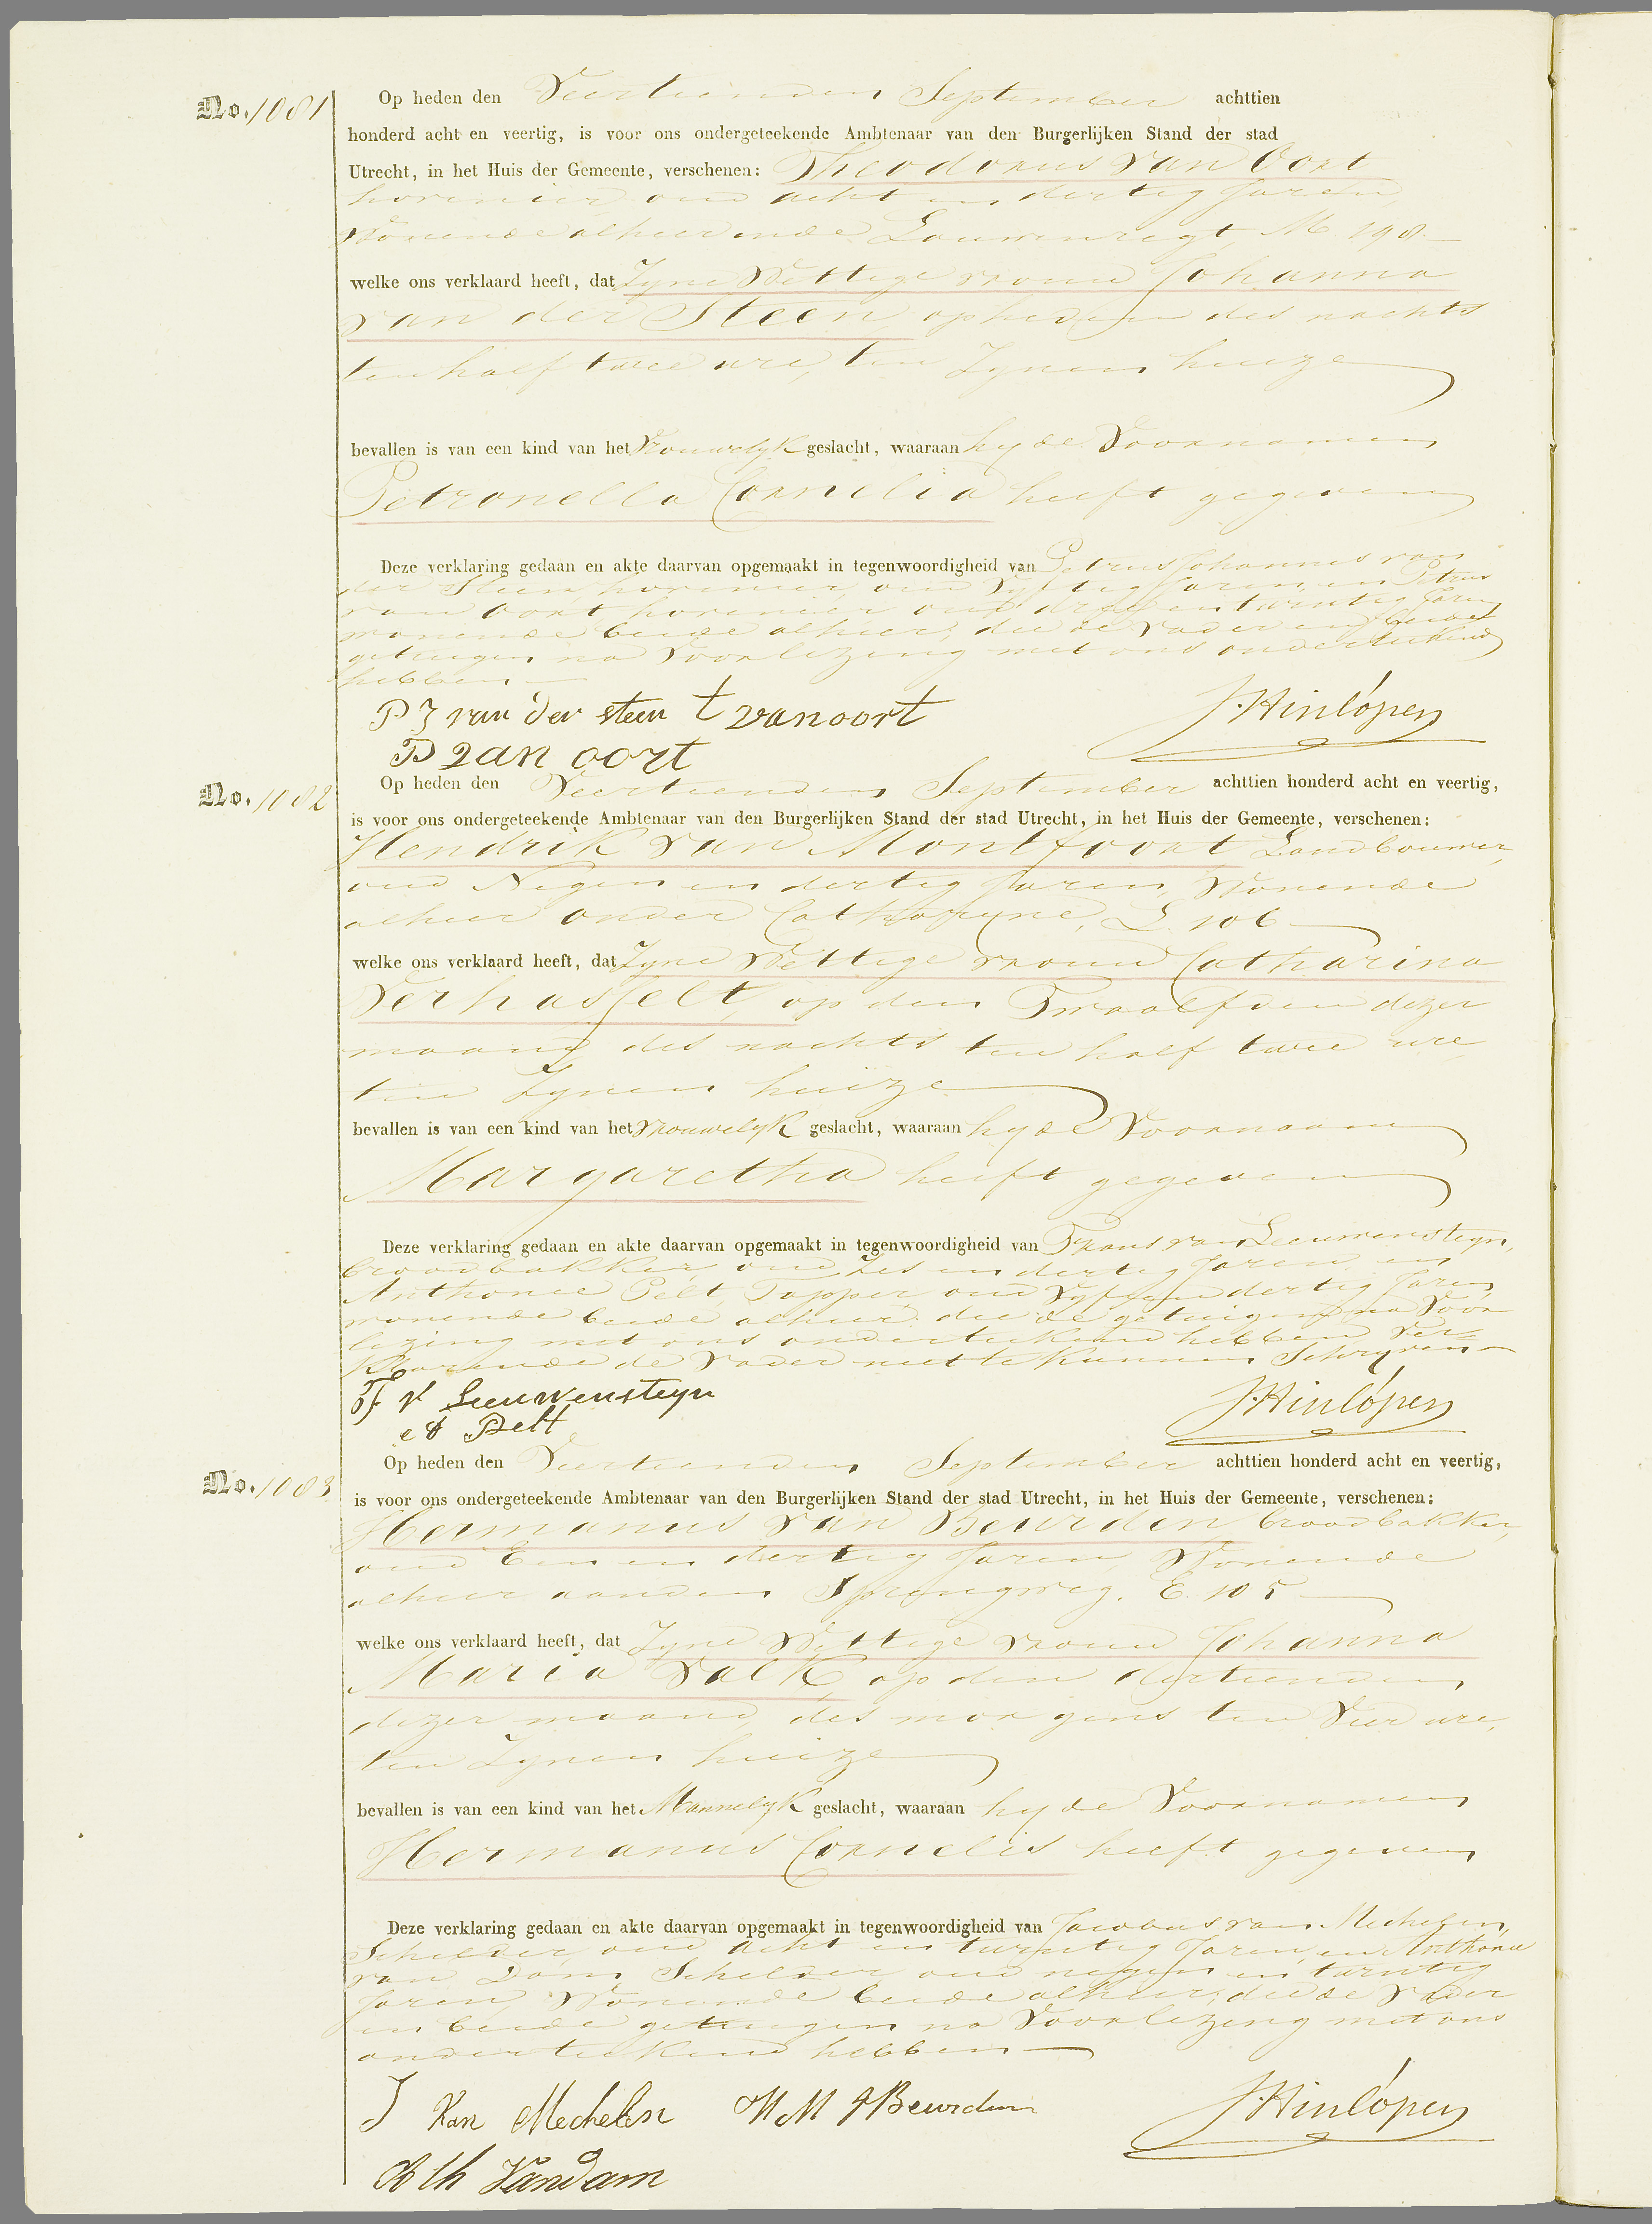 No. 1081
Op heden den Veertienden September achttien
honderd acht en veertig, is voor ons ondergeteekende Ambtenaar van den Burgerlijken Stand der stad
Utrecht, in het Huis der Gemeente, verschenen: Theodorus van Oort
hovenier, oud acht en dertig Jaren,
Wonende alhier in de Lauwenregt, M. 198.
welke ons verklaard heeft, dat Zyne Wettige vrouw Johanna
van der Steen, op heden des nachts
ten half twee ure, ten Zynen huize
bevallen is van een kind van het Vrouwelyk geslacht, waaraan hy de Voornamen
Petronella Cornelia heeft gegeven
Deze verklaring gedaan en akte daarvan opgemaakt in tegenwoordigheid van Petrus Johannes van
der Steen, hovenier, oud Vyftig Jaren, en Petrus
van Oort hovenier oud drie en twintig Jaren
wonende beide alhier, die de Vader en beide
getuigen na Voorlezing met ons onderteekend
hebben
P J van der steen t van oort J. Hinlópen
P van oort
No. 1082
Op heden den Veertienden September achttien honderd acht en veertig,
is voor ons ondergeteekende Ambtenaar van den Burgerlijken Stand der stad Utrecht, in het Huis der Gemeente, verschenen:
Hendrik van Montfoort Landbouwer,
oud Negen en dertig Jaren, Wonende
alhier onder Catharyne, L. 106
welke ons verklaard heeft, dat Zyne Wettige vrouw Catharina
Verhasselt, op den Twaalfden dezer
maand des nachts ten half twee ure
ten Zynen huize
bevallen is van een kind van het vrouwelyk geslacht, waaraan hy de Voornaam
Margaretha heeft gegeven
Deze verklaring gedaan en akte daarvan opgemaakt in tegenwoordigheid van Frans van Leeuwensteyn,
broodbakker oud Zes en dertig Jaren, en
Anthonie Pelt, Tapper, oud Vyf en dertig Jaren
wonende beide alhier, die de getuigen na Voor
lezing met ons onderteekend hebben Ver=
klarende de Vader niet te kunnen Schryven
F V Leeuwensteyn J. Hinlópen
A Pelt
No. 1083
Op heden den Veertienden September achttien honderd acht en veertig,
is voor ons ondergeteekende Ambtenaar van den Burgerlijken Stand der stad Utrecht, in het Huis der Gemeente, verschenen:
Hermanus van Beurden broodbakker,
oud Een en dertig Jaren, Wonende
alhier aan den Springweg. E. 105
welke ons verklaard heeft, dat Zyne Wettige vrouw Johanna
Maria Valk, op den dertienden
dezer maand, des morgens ten Vier ure,
ten Zynen huize
bevallen is van een kind van het Mannelyk geslacht, waaraan hy de Voornamen
Hermanus Cornelis heeft gegeven
Deze verklaring gedaan en akte daarvan opgemaakt in tegenwoordigheid van Jacobus van Mechelen,
Schilder, oud acht en twintig Jaren, en Anthonie
van Dam, Schilder, oud negen en twintig
Jaren, Wonende beide alhier, die de Vader
en beide getuigen na Voorlezing met ons
onderteekend hebben
J Van Mechelen H M V Beurden J. Hinlópen
Ath Van Dam